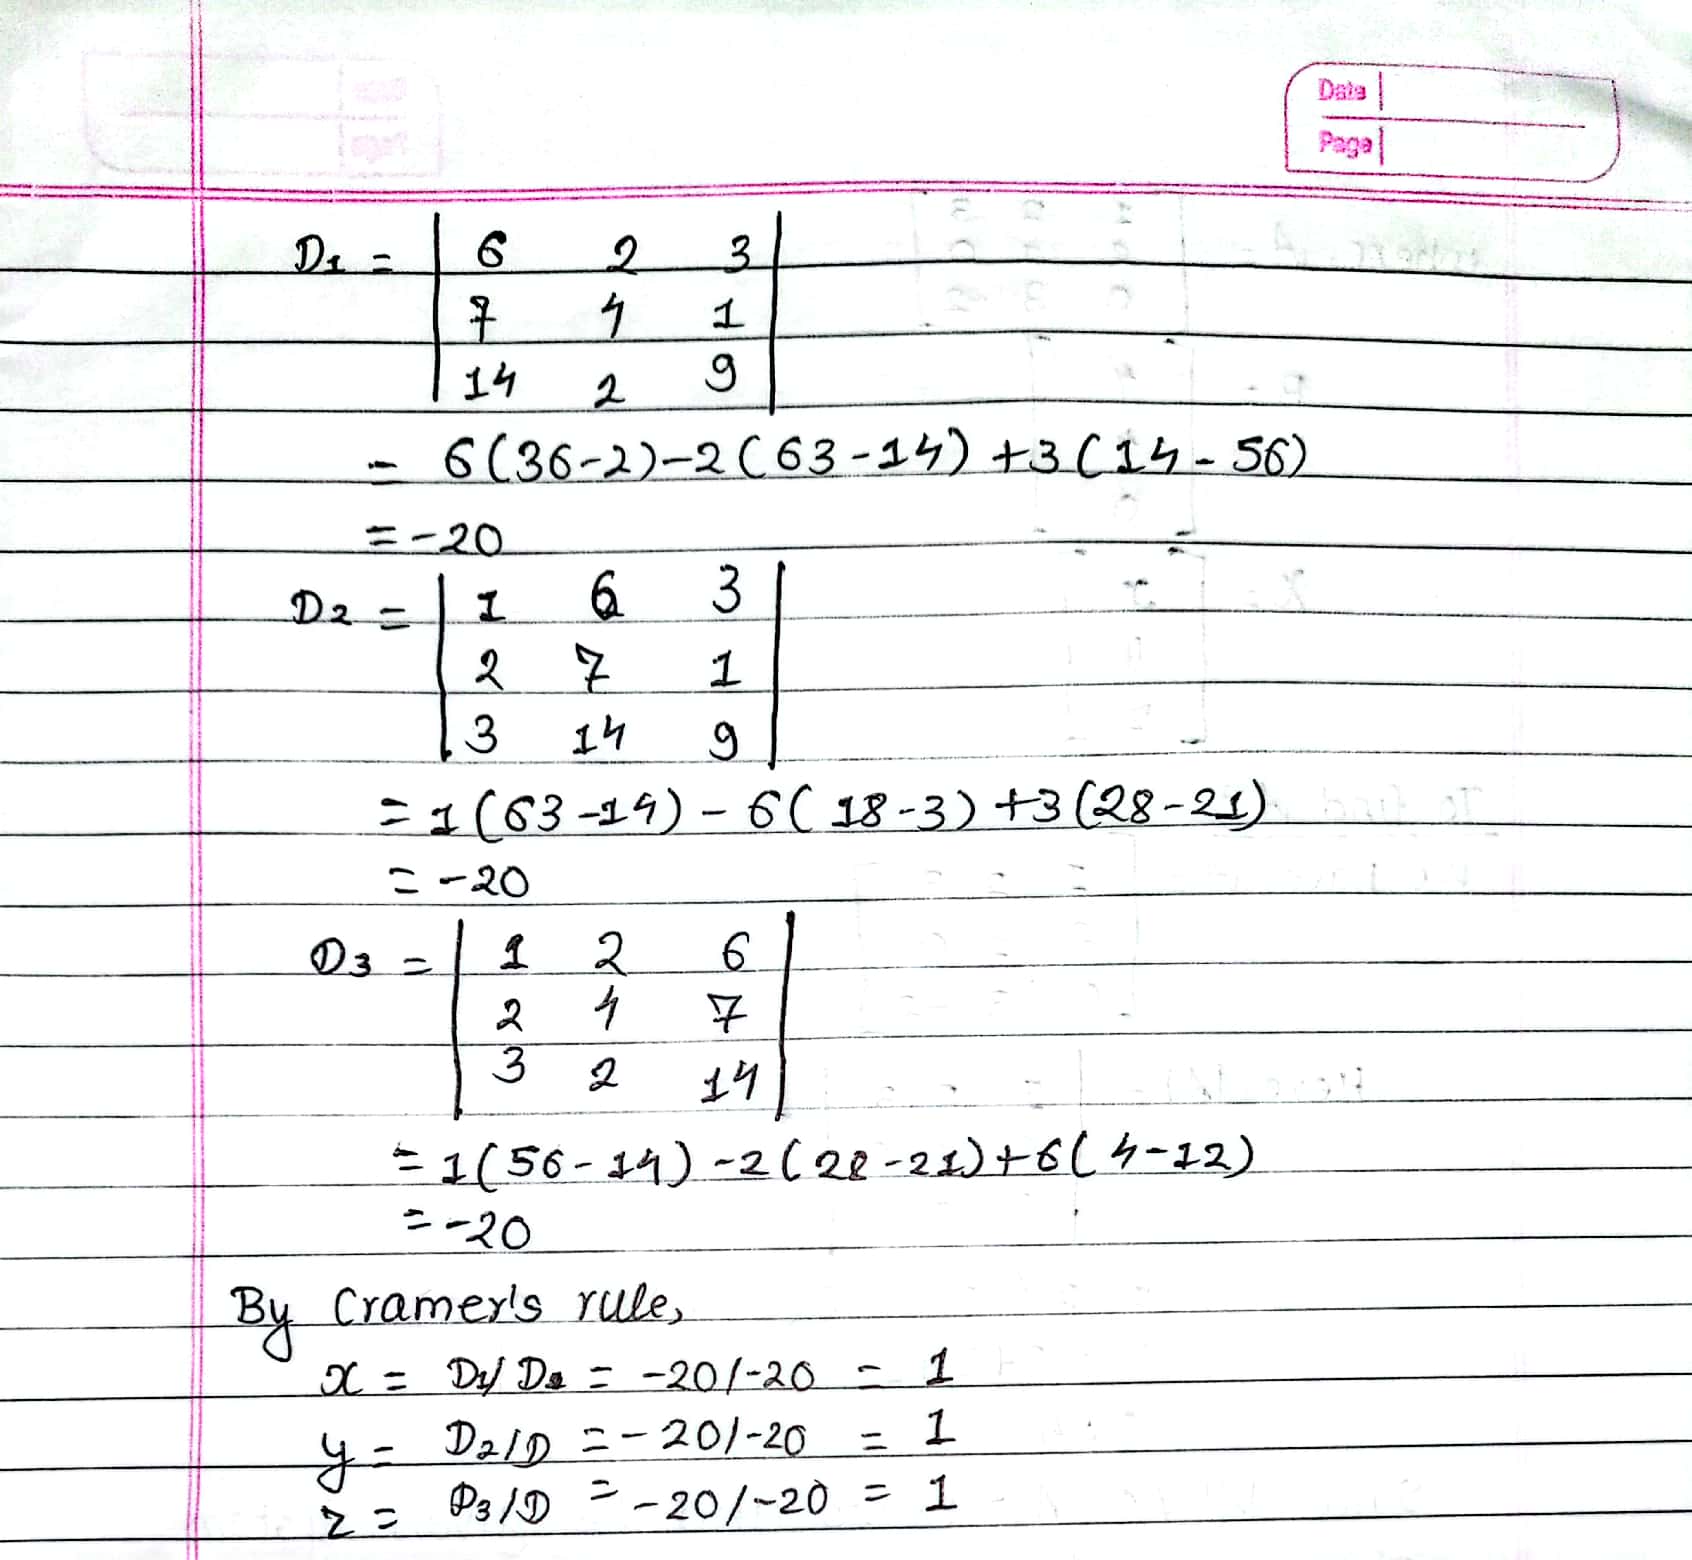 Date
Page
D1 = | 6 2 3 |
| 7 4 1 |
| 14 2 9 |
= 6(36-2)-2(63-14)+3(14-56)
= -20
D2 = | 1 6 3 |
| 2 7 1 |
| 3 14 9 |
= 1(63-14)-6(18-3)+3(28-21)
= -20
D3 = | 1 2 6 |
| 2 4 7 |
| 3 2 14 |
= 1(56-14)-2(28-21)+6(4-12)
= -20
By Cramer's rule,
x = D1/D = -20/-20 = 1
y = D2/D = -20/-20 = 1
z = D3/D = -20/-20 = 1